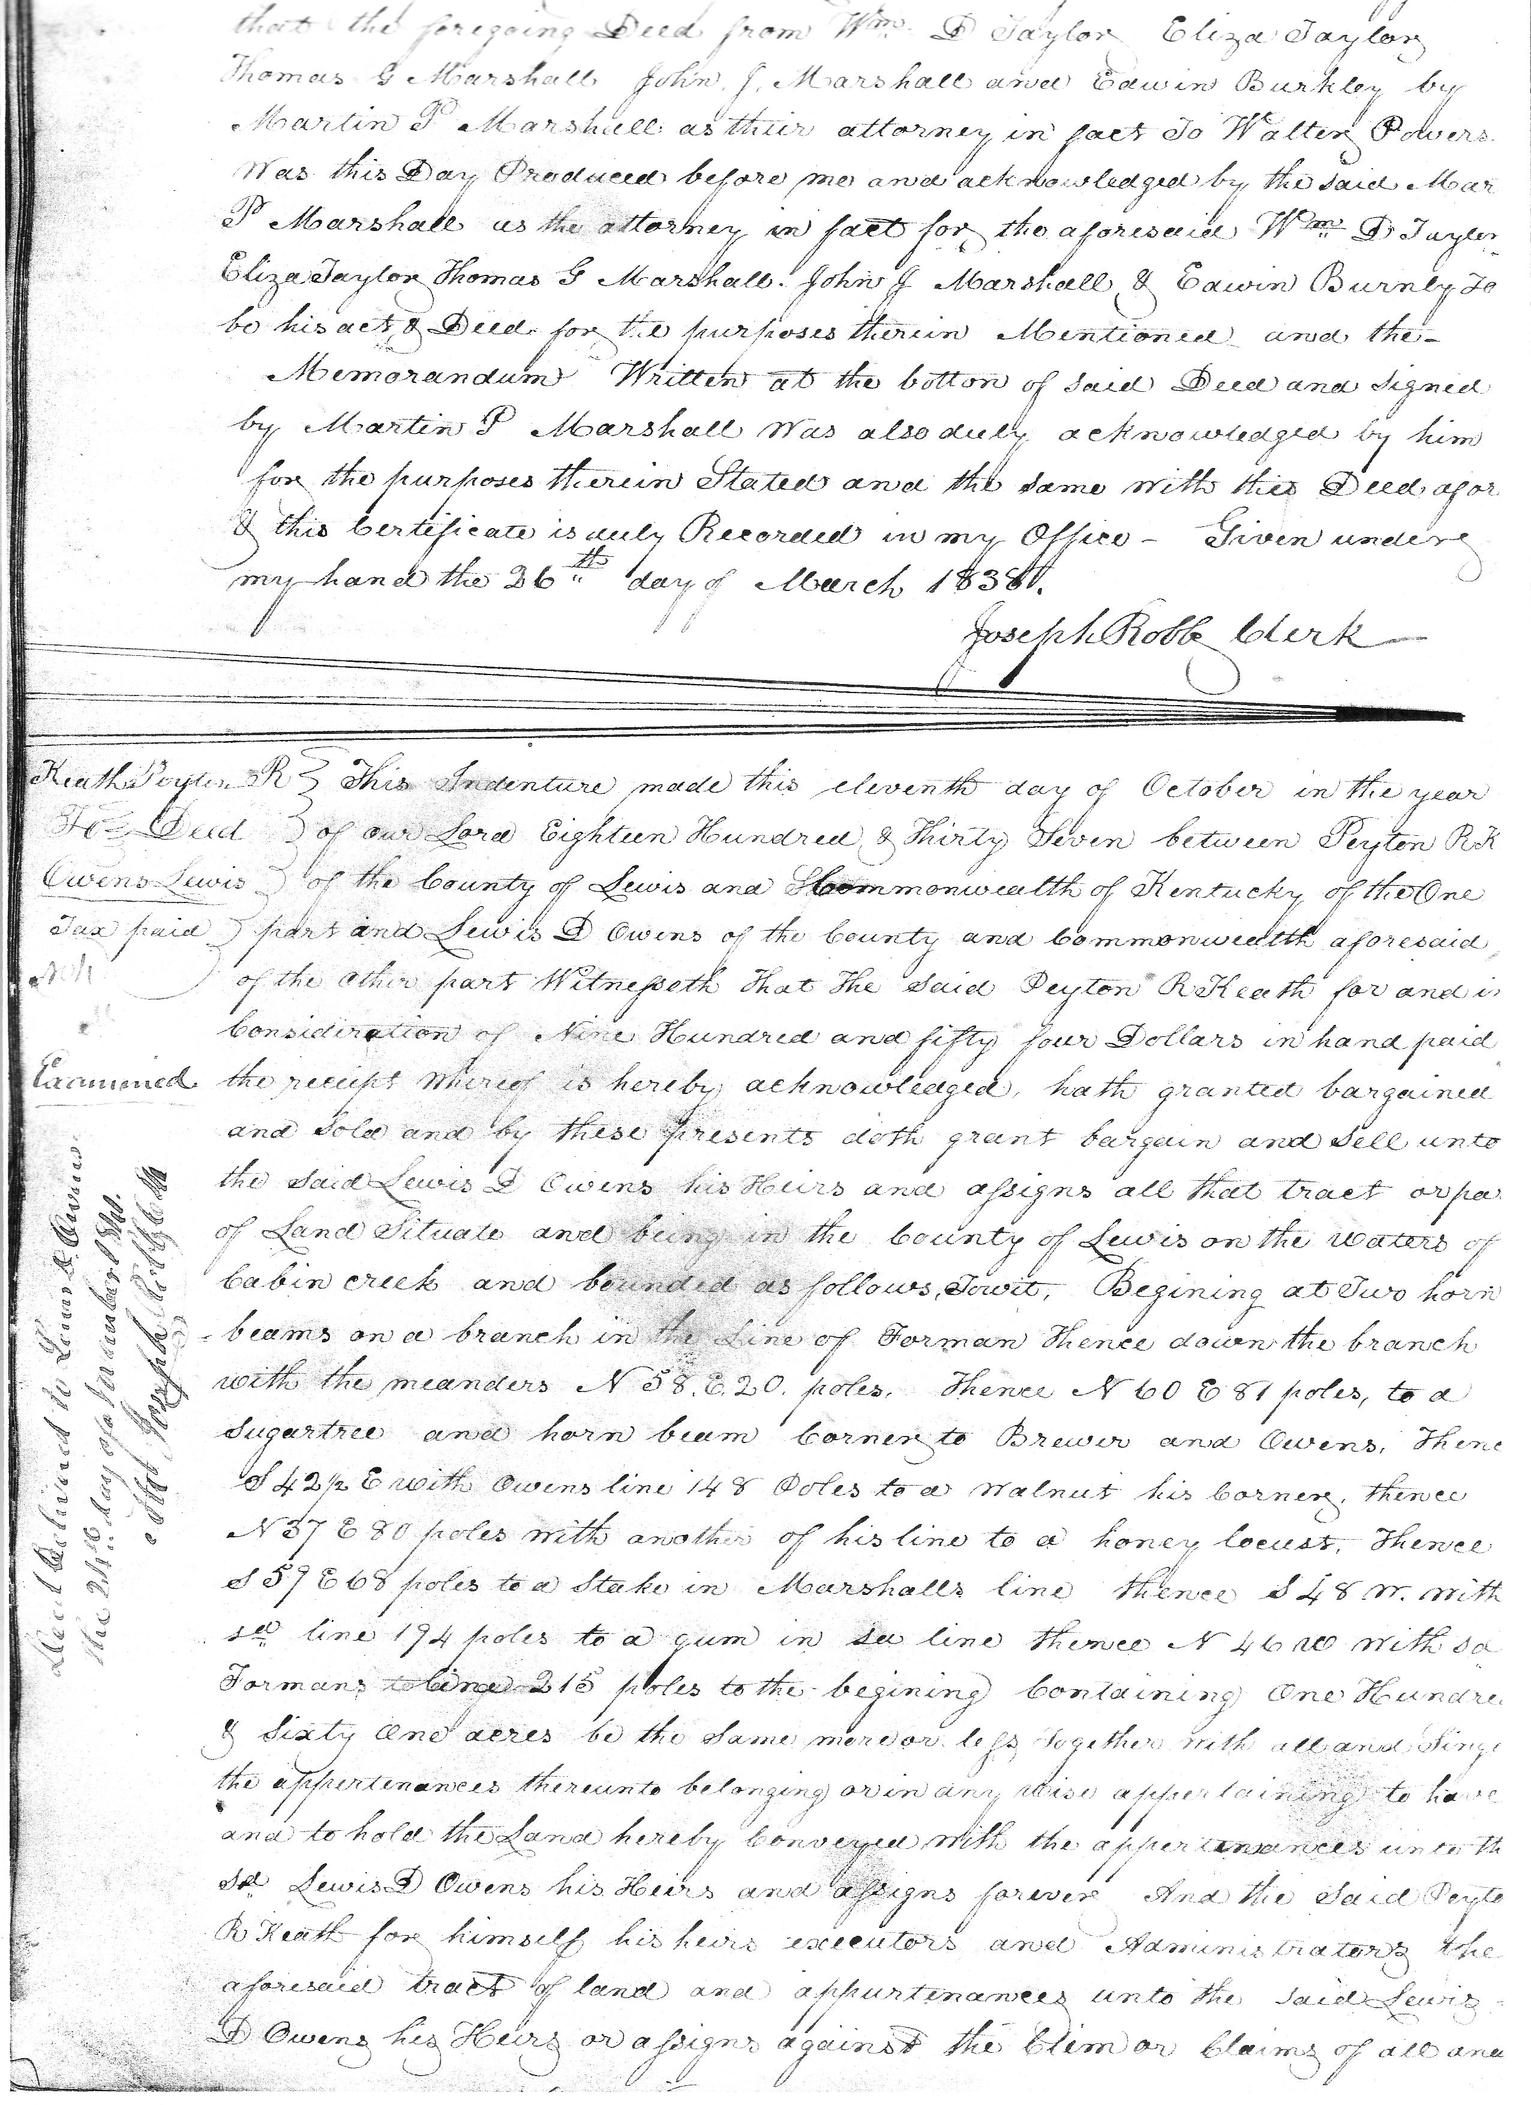 that the foregoing Deed from Wm D Taylor Eliza Taylor
Thomas G Marshall John J. Marshall and Edwin Burkley by
Martin P Marshall as their attorney in fact To Walter Powers
Was this Day Produced before me and acknowledged by the said Mar
P Marshall as the attorney in fact for the aforesaid Wm D Taylor
Eliza Taylor Thomas G Marshall. John J Marshall & Edwin Burnley To
be his act & Deed for the purposes therein Mentioned and the-
Memorandum Written at the botton of said Deed and Signed
by Martin P Marshall Was also duly acknowledged by him
for the purposes therein Stated and the same with this Deed afor
& this Certificate is duly Recorded in my Office - Given under
my hand the 26th day of March 1838.
Joseph Robb Clerk
Keath Peyton R } This Indenture made this eleventh day of October in the year
To Deed } of our Lord Eighteen Hundred & Thirty Seven between Peyton R K
Owens Lewis } of the County of Lewis and Commonwealth of Kentucky of the One
Tax paid } part and Lewis D Owens of the County and Commonwealth aforesaid
of the other part Witnesseth That The Said Peyton R Keath for and in
Consideration of Nine Hundred and fifty four Dollars in hand paid
Examined the receipt whereof is hereby acknowledged, hath granted bargained
and Sold and by these presents doth grant bargain and Sell unto
the Said Lewis D Owens his Heirs and assigns all that tract or pa
of Land Situate and being in the County of Lewis on the waters of
Cabin creek and bounded as follows, Towit, Begining at Two horn
beams on a branch in the Line of Forman Thence down the branch
with the meanders N 58. E. 20. poles. Thence N 60 E 81 poles, to a
Sugartree and horn beam Corner to Brewer and Owens, Thenc
S 42½ E with Owens line 148 Poles to a walnut his Corner, thence
N 37 E 80 poles with another of his line to a honey locust. Thence
S 59 E 68 poles to a Stake in Marshalls line thence S 48 W. with
sd line 194 poles to a gum in sd line thence N 46 W with sd
Formans line 215 poles to the begining Containing One Hundre
& Sixty One acres be the Same more or less together with all and Singu
the appertenances thereunto belonging or in any wise appertaining to have
and to hold the Land hereby Conveyed with the appertenances unto th
Sd Lewis D Owens his Heirs and assigns forever And the Said Peyto
R Keath for himself his heirs executors and Administrators the
aforesaid tract of land and appurtenances unto the said Lewis
D Owens his Heirs or assigns against the Clim or Claims of all and
Deed Delivered to Lewis D. Owens
the 24th day of
Joseph Robb